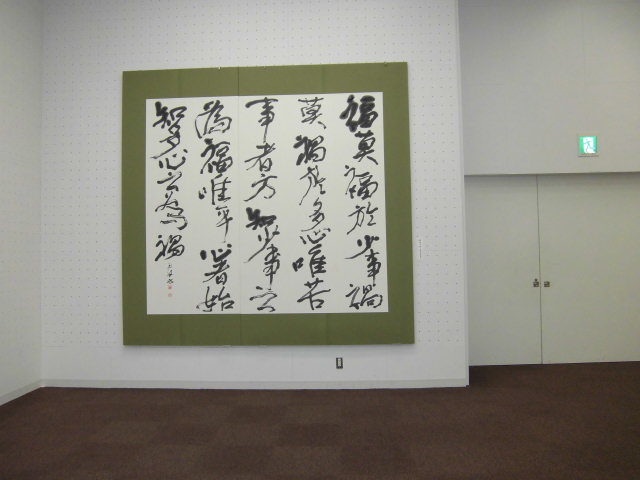 福莫福於少事禍
莫禍於多心唯苦
事者方知少事之
為福唯平心者始
知多心之為禍